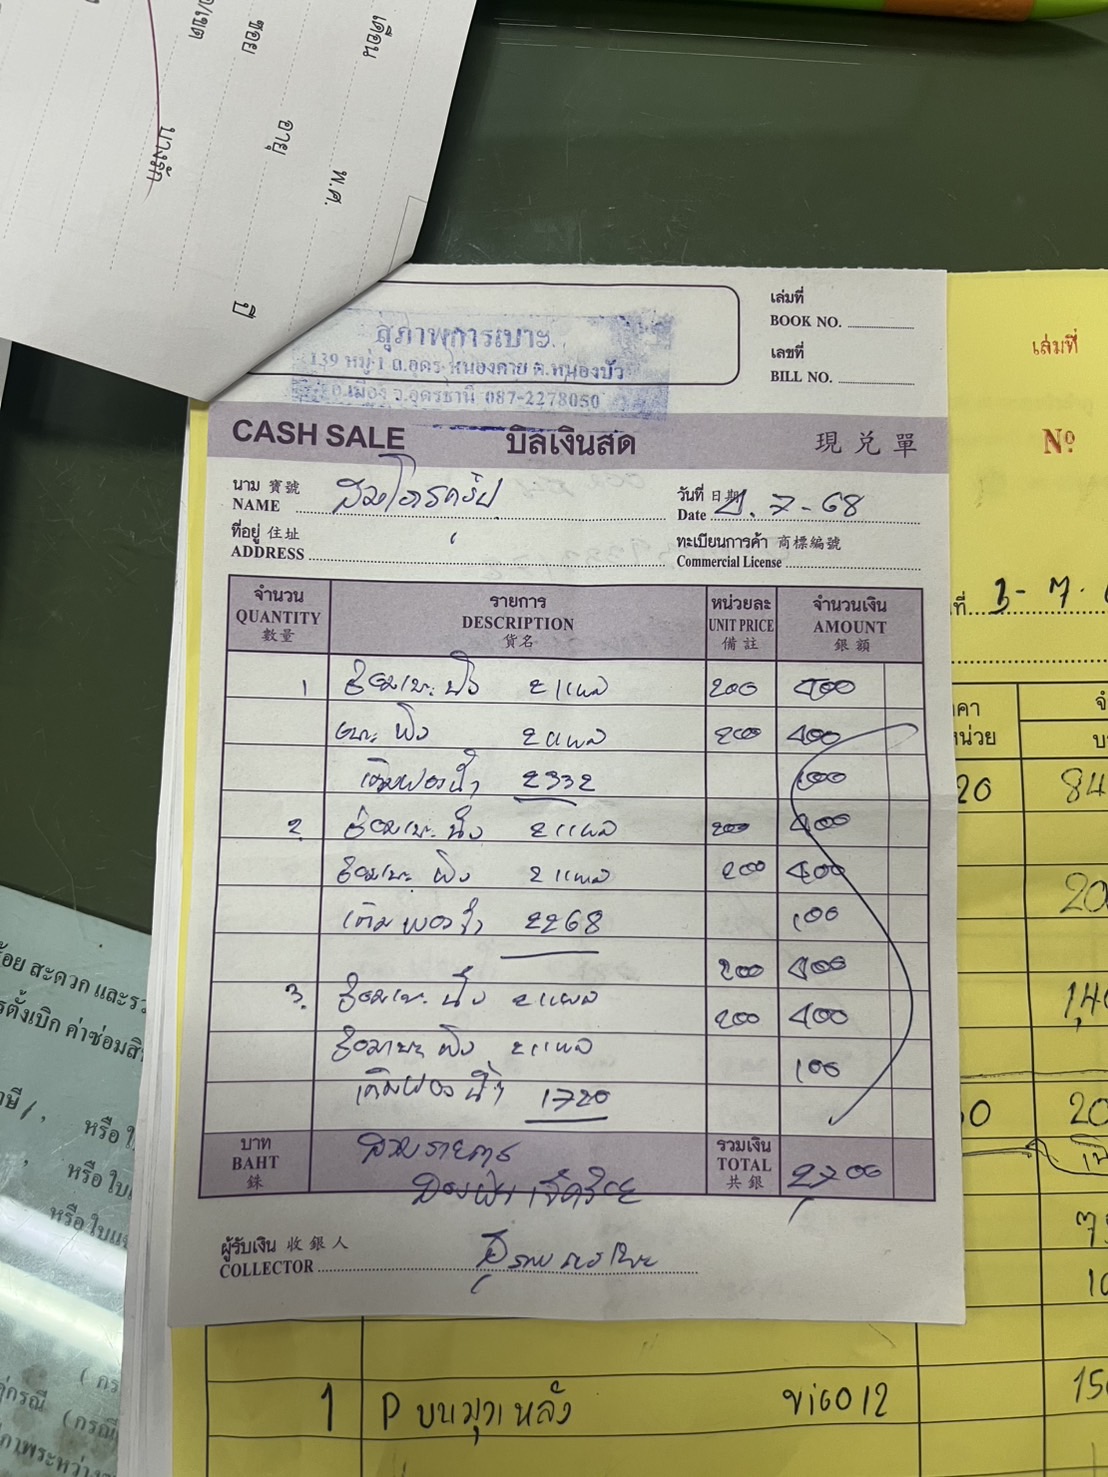 เดือน
ซอย
อายุ
พ.ศ.
บางจัก
ปี
สุภาพการเบาะ
139 หมู่ 1 ถ.อุดร-หนองคาย ต.หนองบัว
อ.เมือง จ.อุดรธานี 087-2278050
เล่มที่
BOOK NO.
เลขที่
BILL NO.
CASH SALE บิลเงินสด 現兑單
นาม 寶號
NAME
วันที่ 日期
Date 2. 7-68
ที่อยู่ 住址
ADDRESS
ทะเบียนการค้า 商標編號
Commercial License
จำนวน รายการ หน่วยละ จำนวนเงิน
QUANTITY DESCRIPTION UNIT PRICE AMOUNT
數量 貨名 備註 銀額
1 ซ่อมเบาะ นั่ง 2 แผล 200 400
เบาะ พิง 2 แผล 200 400
เติมฟองน้ำ 2332 100
2. ซ่อมเบาะ นั่ง 2 แผล 200 400
ซ่อมเบาะ พิง 2 แผล 200 400
เติมฟองน้ำ 2268 100
200 400
3. ซ่อมเบาะ นั่ง 2 แผล 200 400
ซ่อมเบาะ พิง 2 แผล 100
เติมฟองน้ำ 1720
บาท รวมเงิน
BAHT TOTAL 2700
銖 共銀
สามรายการ
ผู้รับเงิน 收銀人
COLLECTOR
เล่มที่
Nº
ที่ 3-7.
20 84
20
1,4
20
75
10
1 P บนมุมหลัง vigo12 150
ร้อย สะดวก และรว
รตั้งเบิก ค่าซ่อมสิ
หรือ ใ
หรือ ใบ
หรือ ใบแ
( กร
คู่กรณี (กรณี
ภาพระหว่าง